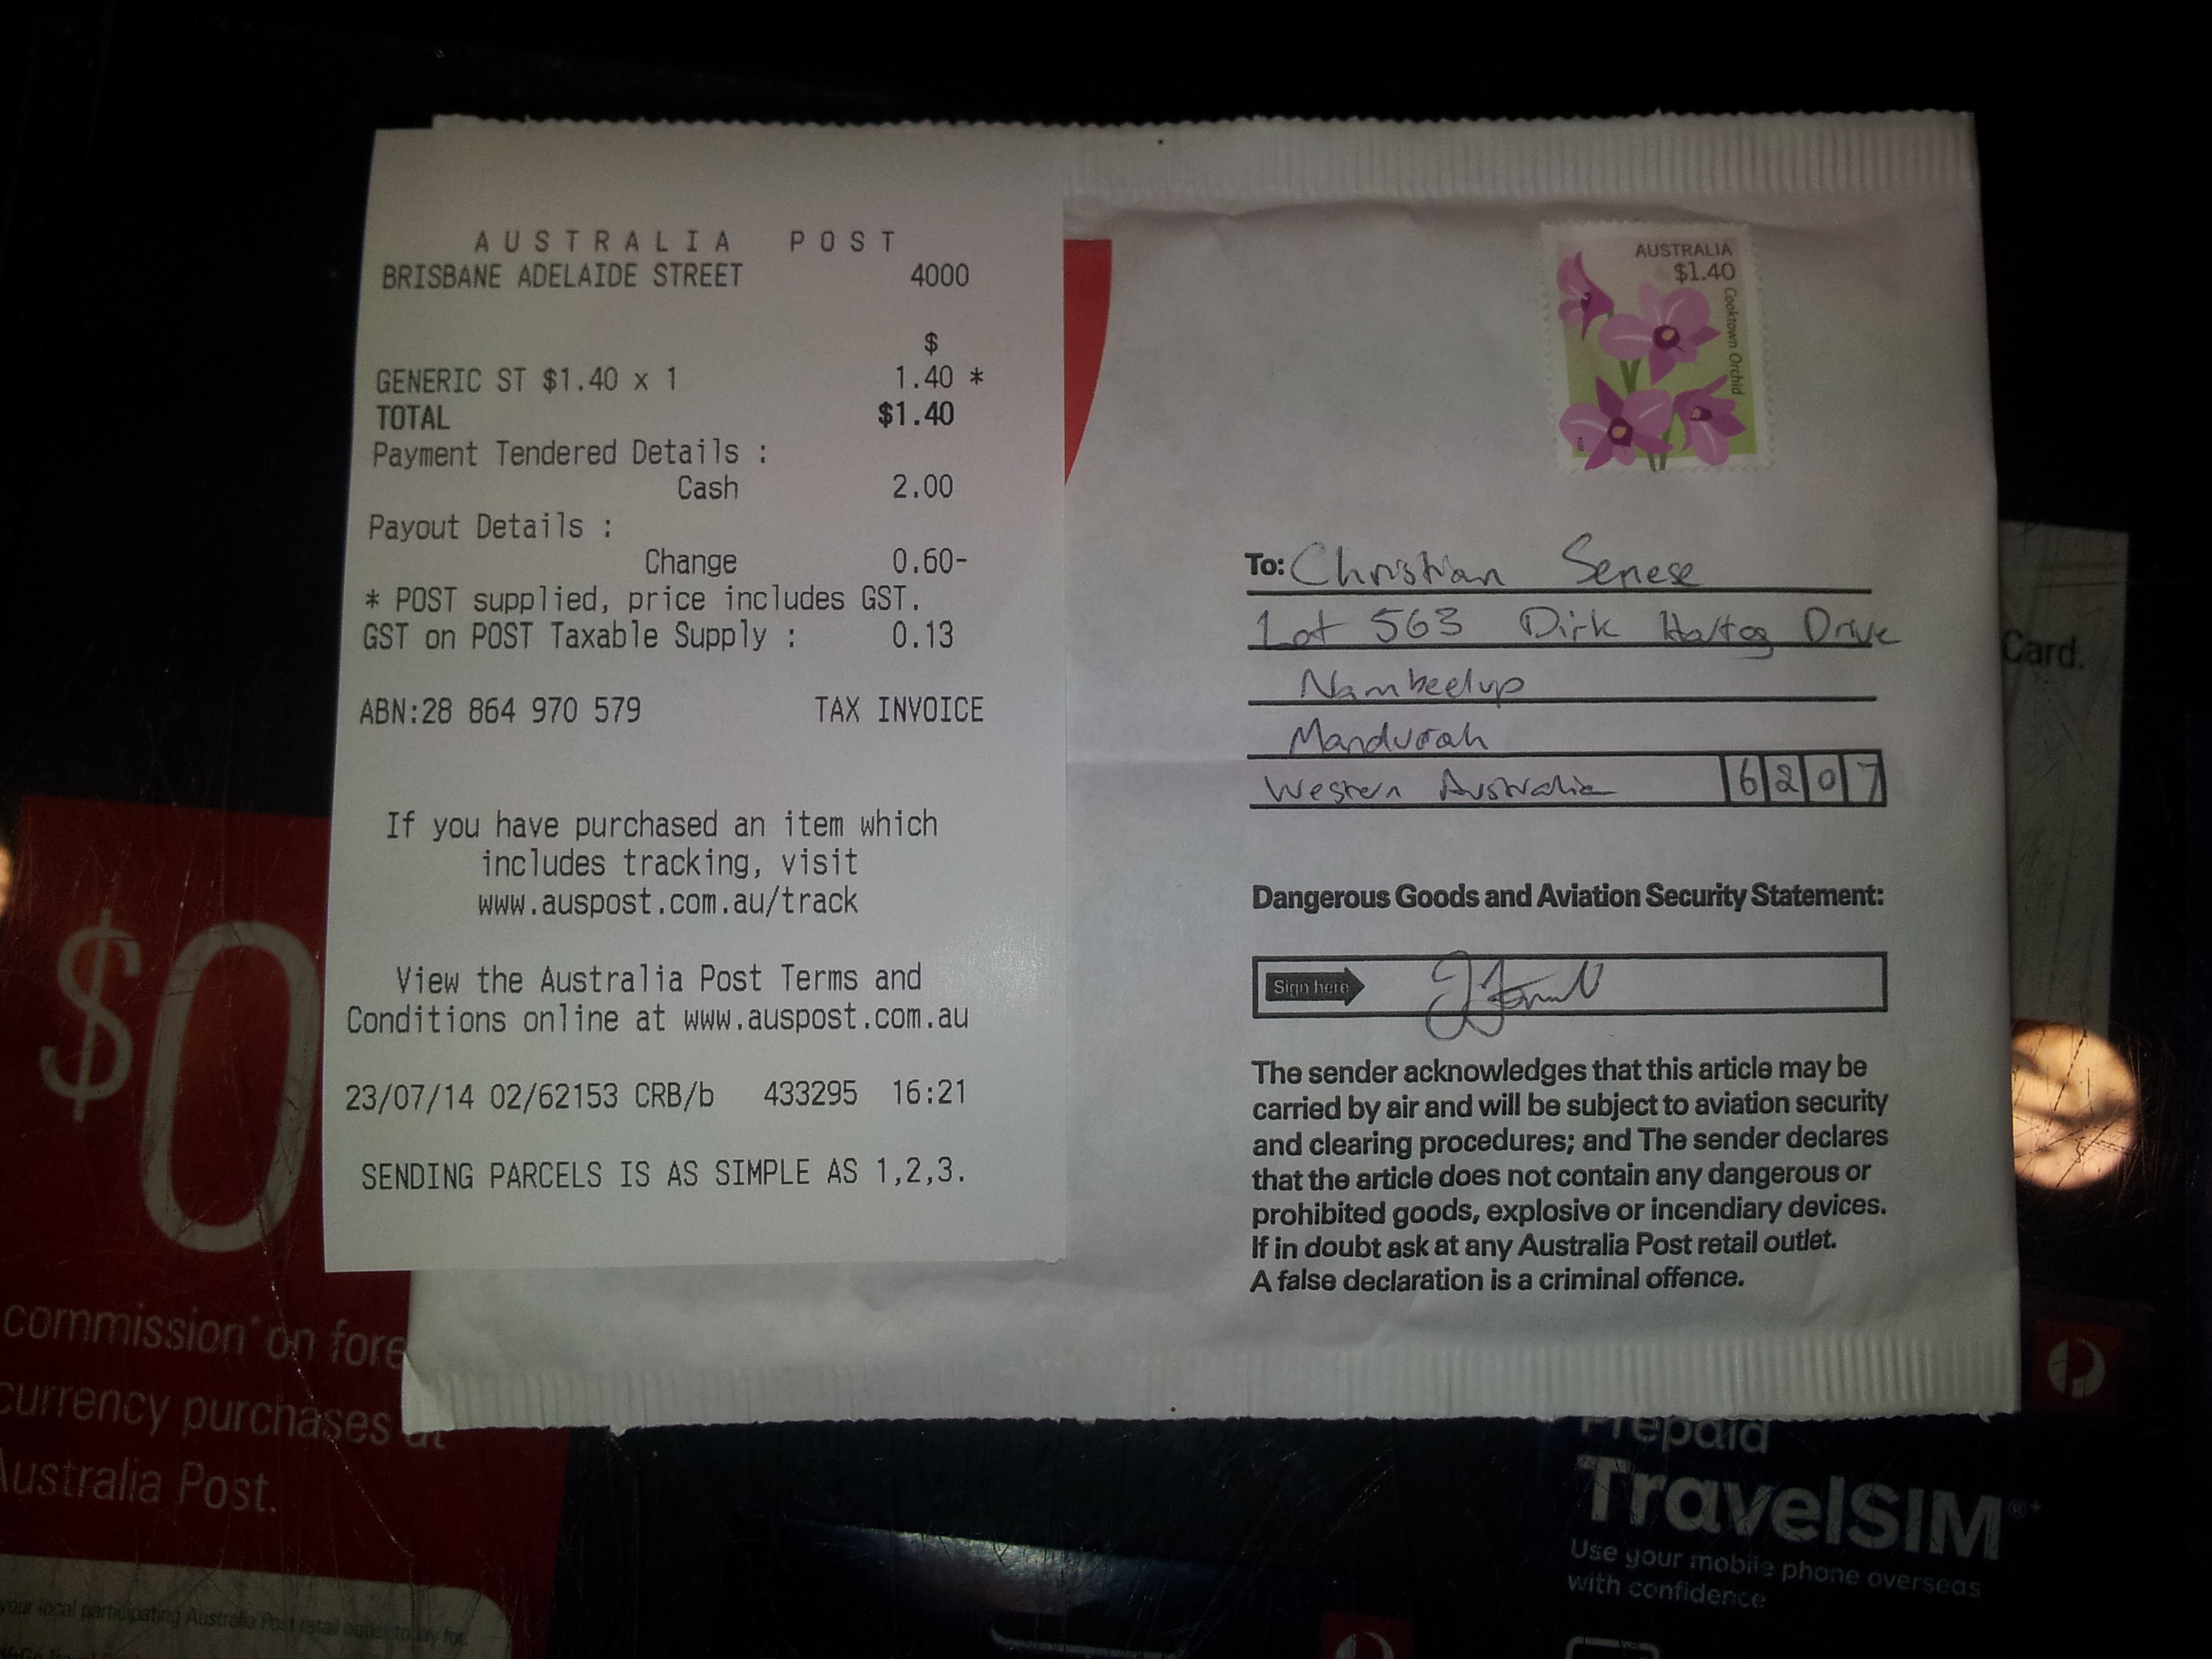 AUSTRALIA POST
BRISBANE ADELAIDE STREET 4000
$
GENERIC ST $1.40 x 1 1.40 *
TOTAL $1.40
Payment Tendered Details :
Cash 2.00
Payout Details :
Change 0.60-
* POST supplied, price includes GST.
GST on POST Taxable Supply : 0.13
ABN:28 864 970 579 TAX INVOICE
If you have purchased an item which
includes tracking, visit
www.auspost.com.au/track
View the Australia Post Terms and
Conditions online at www.auspost.com.au
23/07/14 02/62153 CRB/b 433295 16:21
SENDING PARCELS IS AS SIMPLE AS 1,2,3.
AUSTRALIA
$1.40
Cooktown Orchid
To: Christian Senese
Lot 563 Dirk Hartog Drive
Nambeelup
Mandurah
Western Australia 6207
Dangerous Goods and Aviation Security Statement:
Sign here
The sender acknowledges that this article may be
carried by air and will be subject to aviation security
and clearing procedures; and The sender declares
that the article does not contain any dangerous or
prohibited goods, explosive or incendiary devices.
If in doubt ask at any Australia Post retail outlet.
A false declaration is a criminal offence.
Card.
$0
commission* on fore
currency purchases at
Australia Post.
your local participating Australia Post retail outlet today for
Prepaid
TravelSIM®+
Use your mobile phone overseas
with confidence